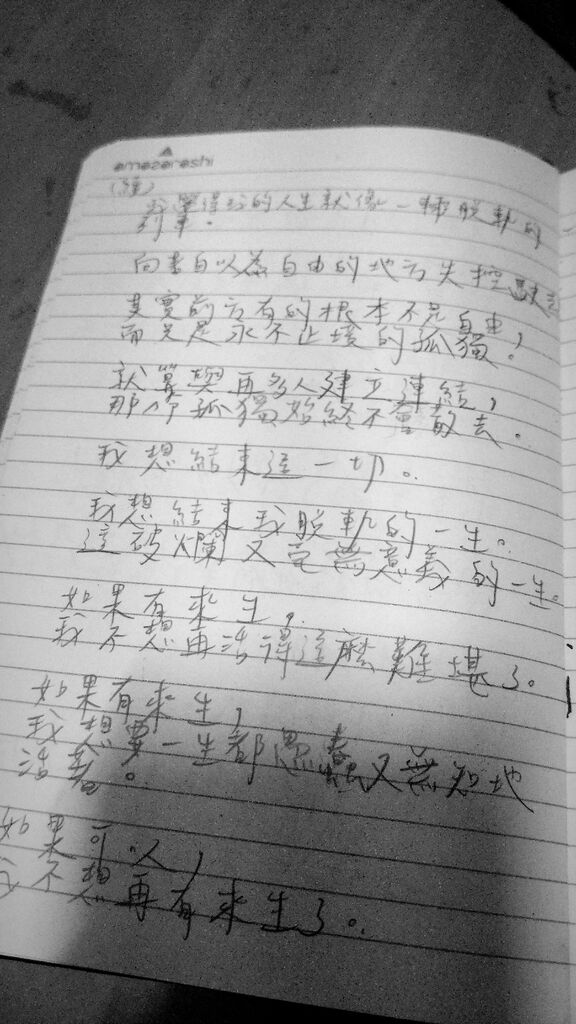 amazarashi
(續)
我覺得我的人生就像一輛脫軌的
列車。
向著自以為自由的地方失控
其實前方有的根本不是自由,
而只是永不止境的孤獨!
就算與再多人建立連結,
那份孤獨始終不會散去。
我想結束這一切。
我想結束我脫軌的一生。
這破爛又毫無意義的一生。
如果有來生,
我不想再活得這麼難堪了。
如果有來生,
我想要一生都愚蠢又無知地
活著。
如果可以,
我不想再有來生了。